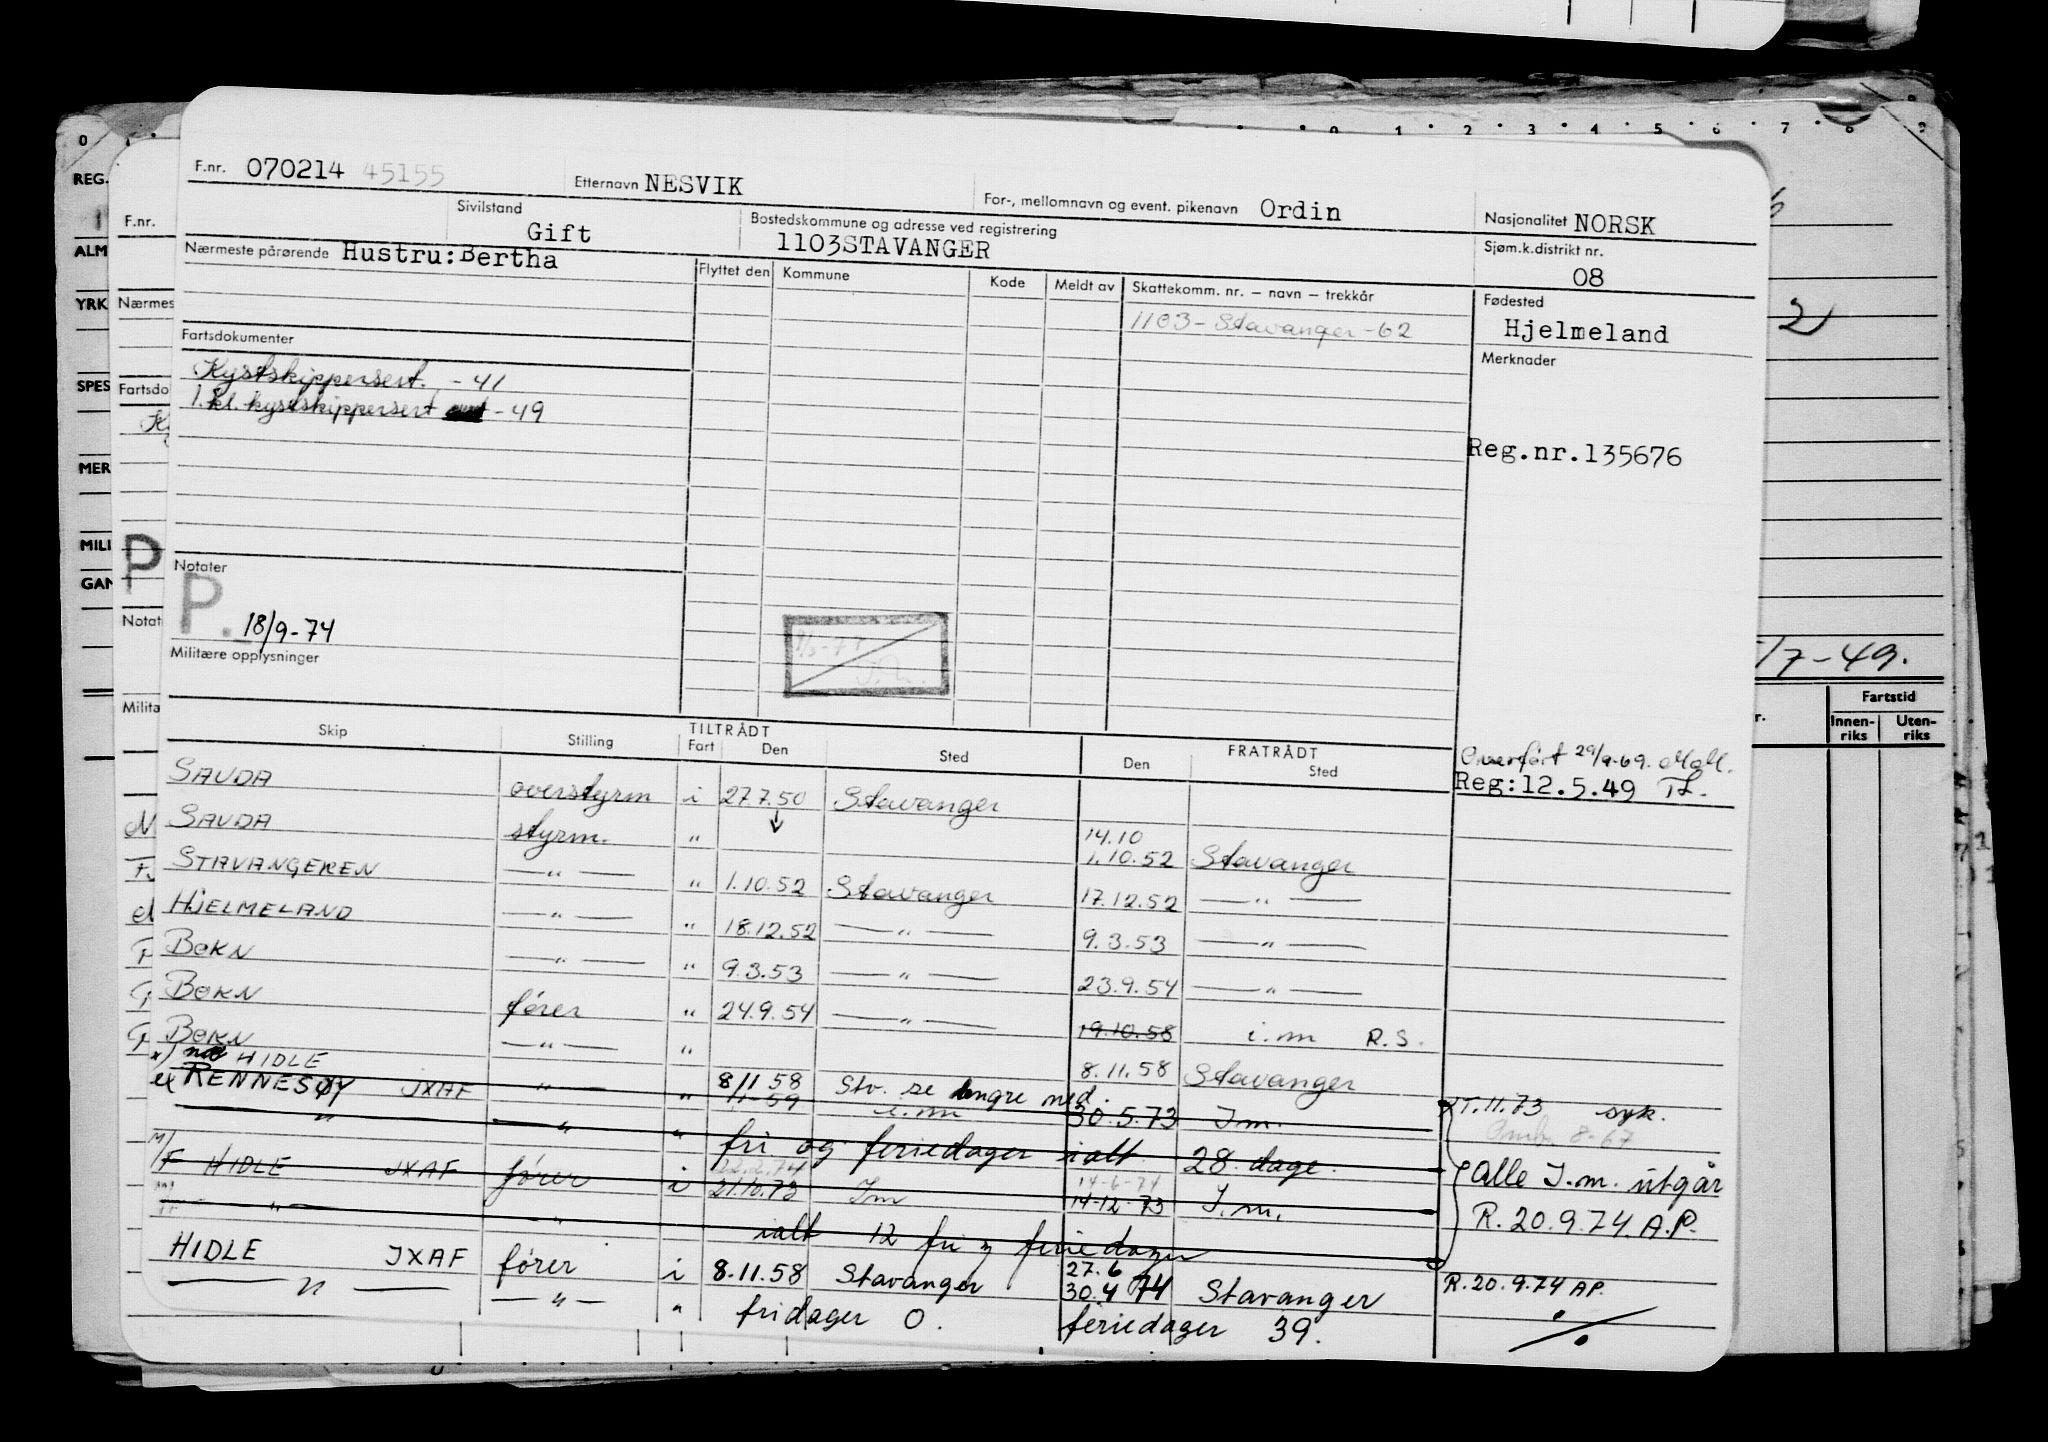 F.nr. 070214 45155 Etternavn NESVIK For-, mellomnavn og event. pikenavn Ordin Nasjonalitet NORSK
Sivilstand Gift Bostedskommune og adresse ved registrering 1103STAVANGER Sjøm.k.distrikt nr. 08
Nærmeste pårørende Hustru:Bertha Flyttet den Kommune Kode Meldt av Skattekomm. nr. – navn – trekkår Fødested
1103 - Stavanger - 62 Hjelmeland
Fartsdokumenter Merknader
Kystskippersert. - 41
1. kl. kystskippersert - 49
Reg.nr.135676
Notater
P. 18/9-74
Militære opplysninger
Overført 29/9-69.
Reg:12.5.49
Skip Stilling TILTRÅDT Fart Den Sted FRATRÅDT Den Sted
SAUDA overstyrm i 27.7.50 Stavanger
SAUDA styrm. " ↓ 14.10 1.10.52 Stavanger
STAVANGEREN — " — " 1.10.52 Stavanger 17.12.52 — " —
HJELMELAND — " — " 18.12.52 — " — 9.3.53 — " —
BOKN — " — " 9.3.53 — " — 23.9.54 — " —
BOKN fører " 24.9.54 — " — 19.10.58 i.m R.S.
BOKN — " — " 8.11.58 Stavanger
x) HIDLE
ex RENNESØY JXAF — " — " 8/11 58 Stv. se lengre ned.
1/1-59 i.m 30.5.73 I.m. 11.73 syk.
" " " fri og feriedager ialt 28 dage. 8-67
M/F HIDLE JXAF fører i 22.2.74 14-6-74
21.10.73 Im 14-12-73 I.m.
Alle I.m. utgår
R. 20.9.74. A.P.
" " ialt 12 fri og feriedager
HIDLE JXAF fører i 8.11.58 Stavanger 27.6 30.4 74 Stavanger R.20.9.74 AP.
— " — — " — " fridager 0. feriedager 39.
F.nr.
Fartsdo
Notat
Milita
REG.
ALM
YRK
SPES
MER
MILI
GAN
P
2
/7-49.
Fartstid
Innen-riks Uten-riks
0 1 2 3 4 5 6 7 8 9